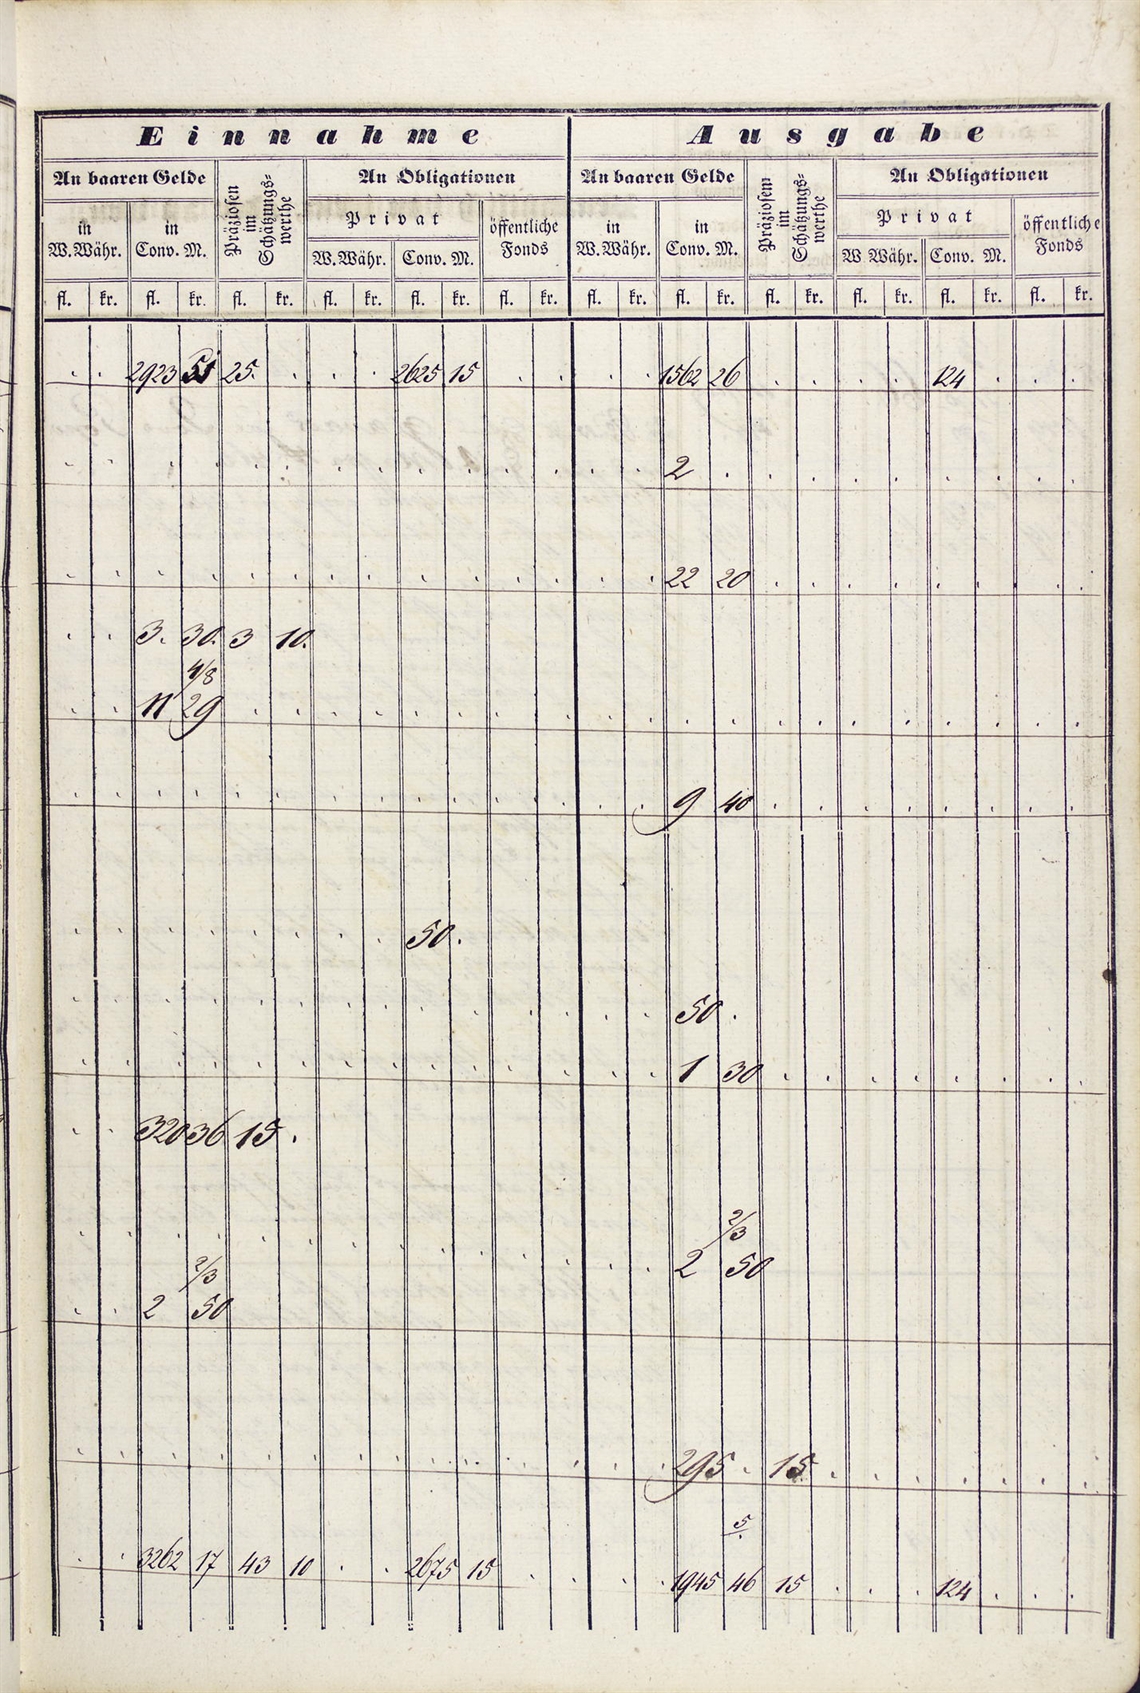 Einnahme Ausgabe
An baaren Gelde Präziosen im Schätzungs-werthe An Obligationen An baaren Gelde Präziosem im Schätzungs-werthe An Obligationen
in W.Währ. in Conv. M. Privat öffentliche Fonds in W.Währ. in Conv. M. Privat öffentliche Fonds
W.Währ. Conv. M. W.Währ. Conv. M.
fl. kr. fl. kr. fl. kr. fl. kr. fl. kr. fl. kr. fl. kr. fl. kr. fl. kr. fl. kr. fl. kr. fl. kr.
2923 51 25. 2625 15 1562 26 124
2
22 20
3. 30. 3 10.
4/8
11 29
9 40
50.
50.
1 30
320 36 15.
2/3
2 50
2/3
2 50
295. 15
5
3262 17 43 10 2675 15 1945 46 15 124